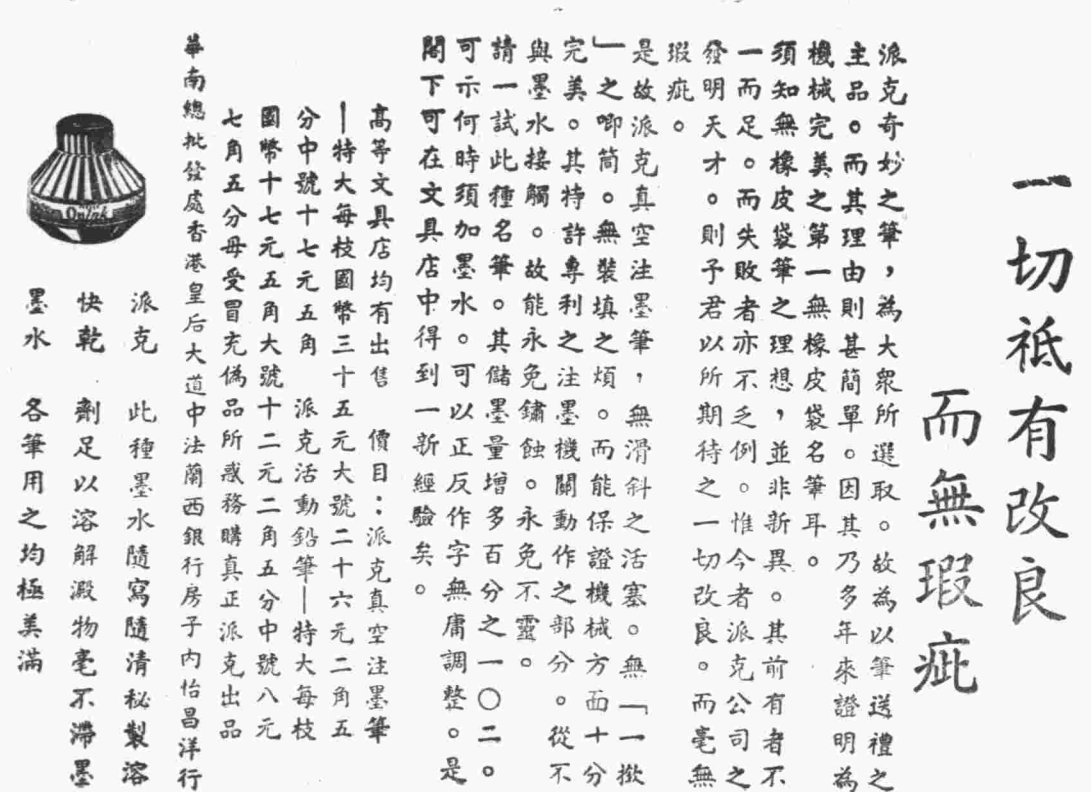 一切祗有改良
而無瑕疵
派克奇妙之筆，為大衆所選取。故為以筆送禮之
主品。而其理由則甚簡單。因其乃多年來證明為
機械完美之第一無橡皮袋名筆耳。
須知無橡皮袋筆之理想，並非新異。其前有者不
一而足。而失敗者亦不乏例。惟今者派克公司之
發明天才。則予君以所期待之一切改良。而毫無
瑕疵。
是故派克真空注墨筆，無滑斜之活塞。無「一撳
」之唧筒。無裝填之煩。而能保證機械方面十分
完美。其特許專利之注墨機關動作之部分。從不
與墨水接觸。故能永免鏽蝕。永免不靈。
請一試此種名筆。其儲墨量增多百分之一〇二。
可示何時須加墨水。可以正反作字無庸調整。是
閣下可在文具店中得到一新經驗矣。
高等文具店均有出售　價目：派克真空注墨筆
—特大每枝國幣三十五元大號二十六元二角五
分中號十七元五角　派克活動鉛筆—特大每枝
國幣十七元五角大號十二元二角五分中號八元
七角五分毋受冒充偽品所惑務購真正派克出品
華南總批發處香港皇后大道中法蘭西銀行房子內怡昌洋行
Quink
派克　此種墨水隨寫隨清秘製溶
快乾　劑足以溶解澱物毫不滯墨
墨水　各筆用之均極美滿